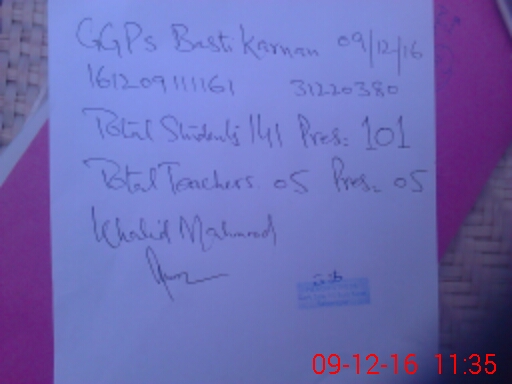 GGPS Basti Karnan 09/12/16
161209111161 31220380
Total Students 141 Pres. 101
Total Teachers. 05 Pres. 05
Khalid Mahmood
09-12-16 11:35